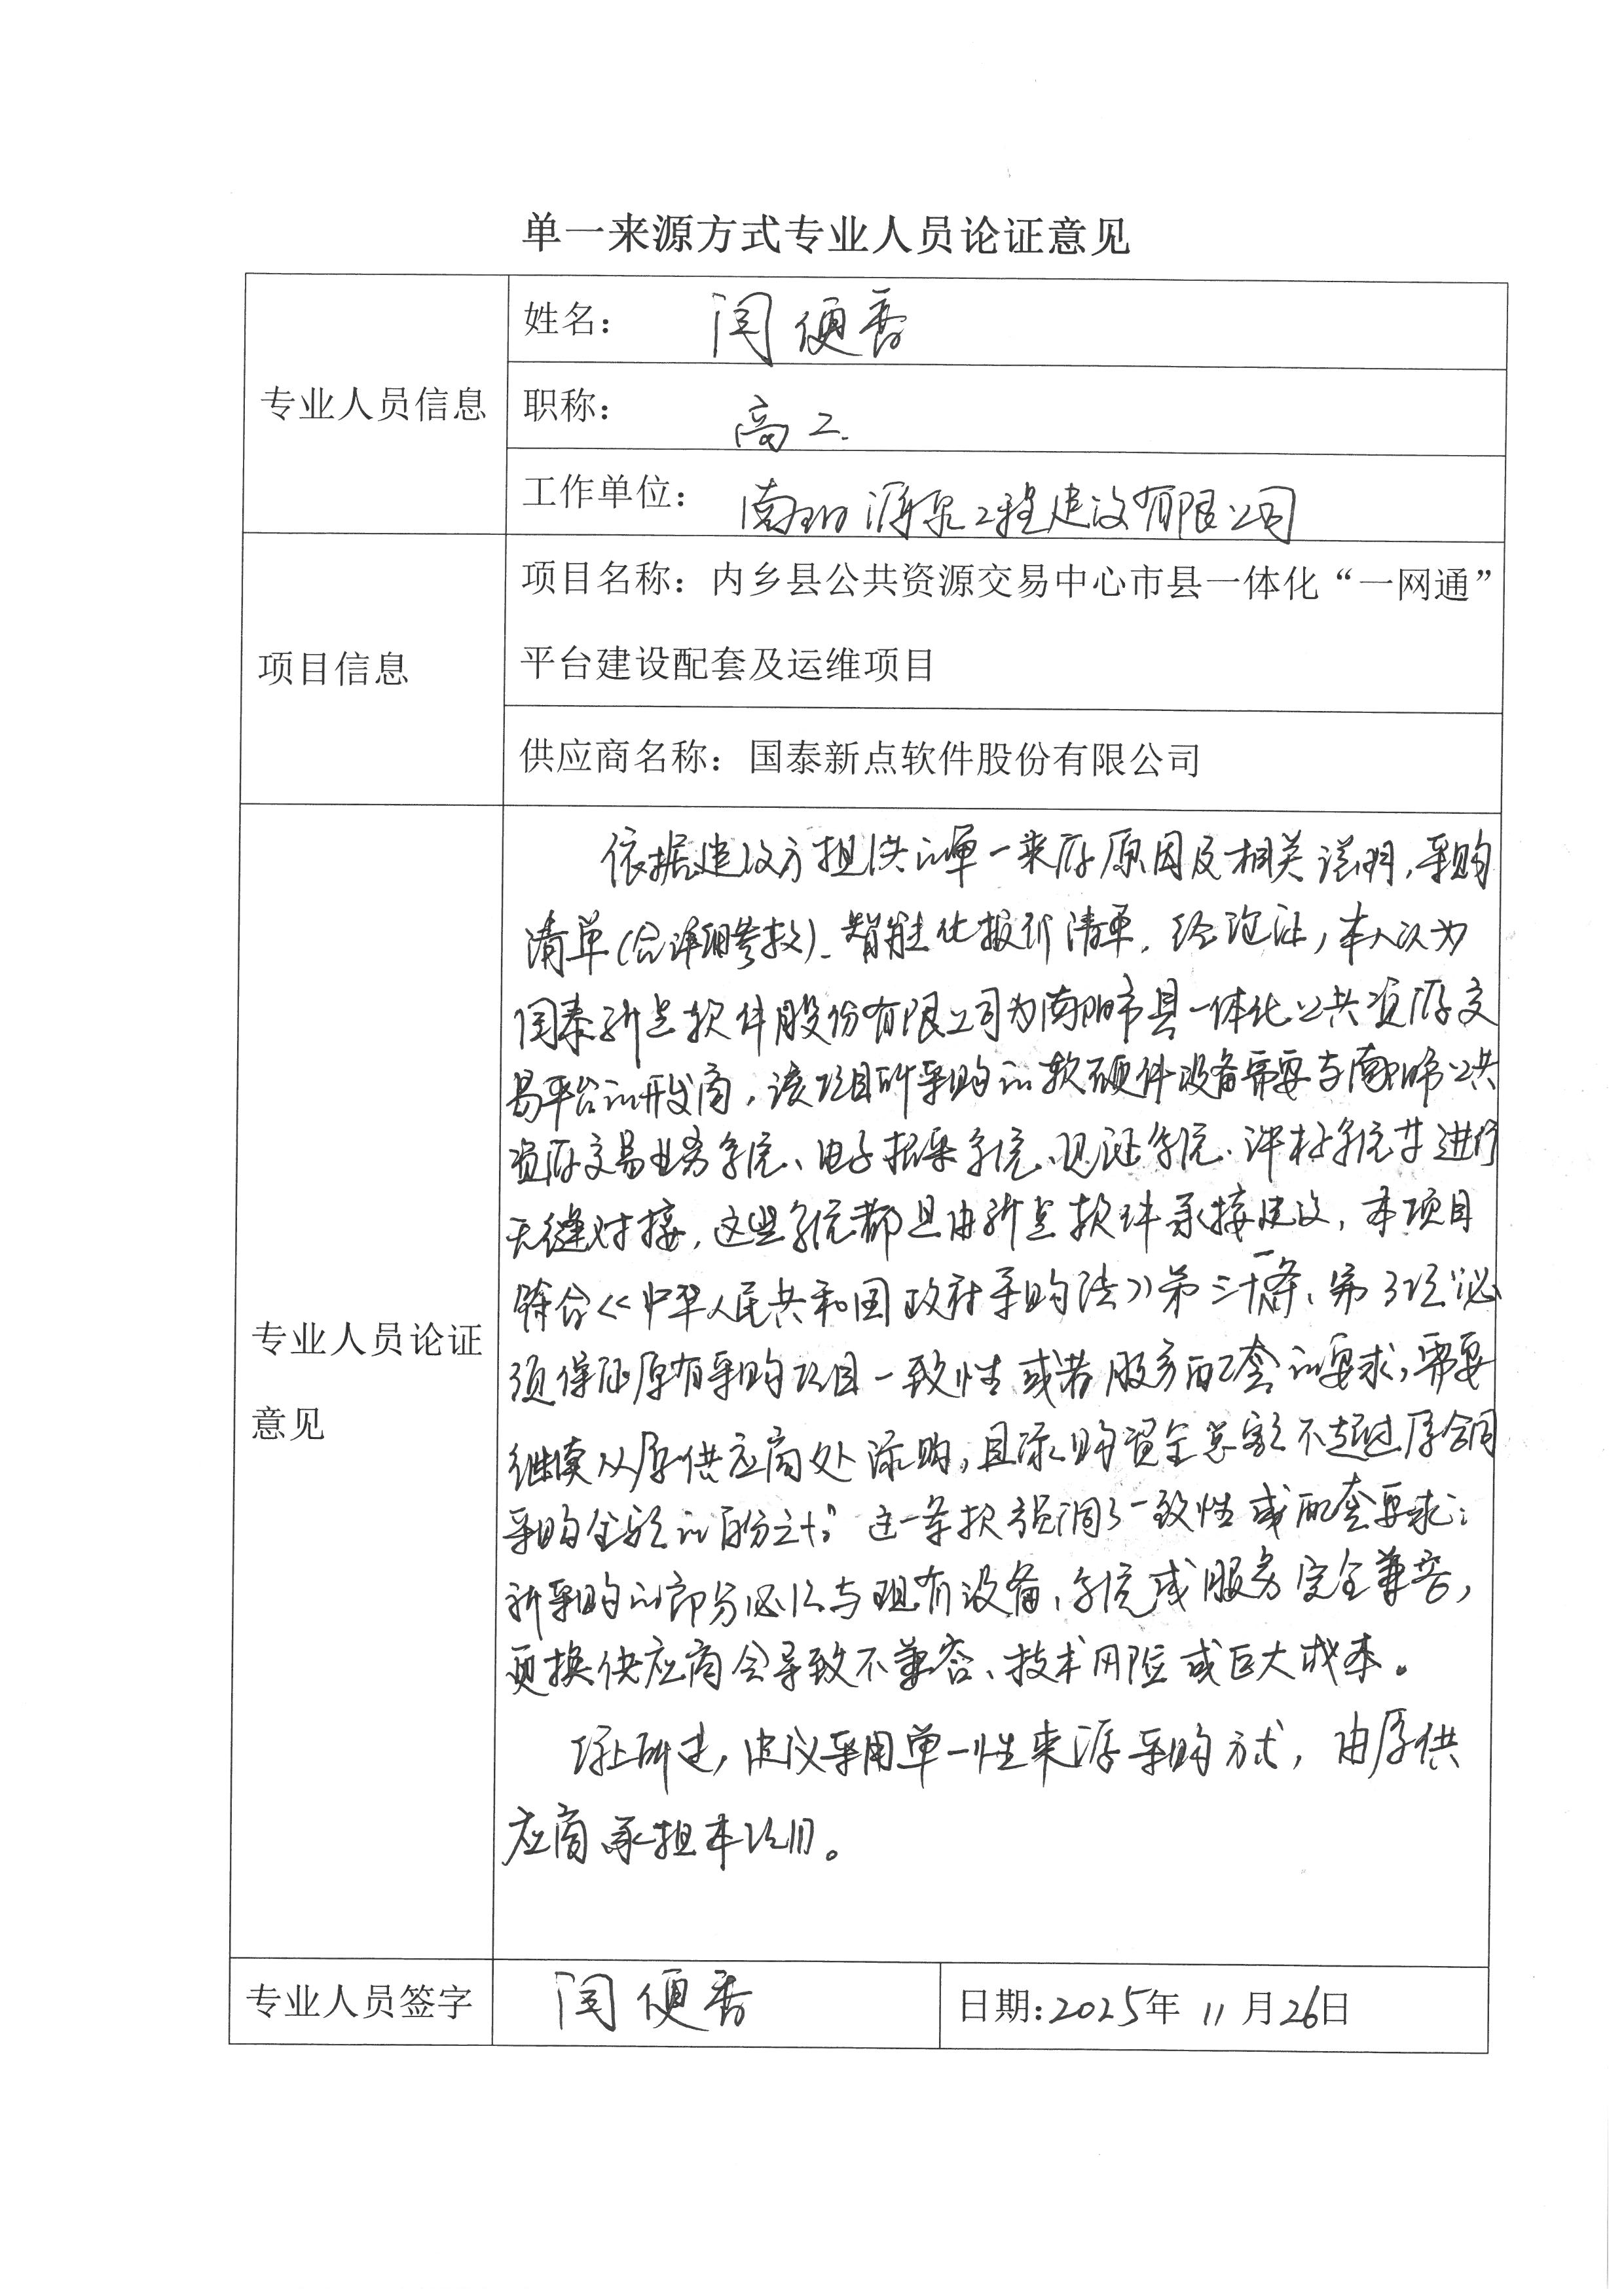 单一来源方式专业人员论证意见
专业人员信息
姓名：闫便香
职称：高工.
工作单位：南阳源泉工程建设有限公司
项目信息
项目名称：内乡县公共资源交易中心市县一体化“一网通”
平台建设配套及运维项目
供应商名称：国泰新点软件股份有限公司
专业人员论证
意见
依据建设方提供的单一来源原因及相关说明，采购
清单(含详细参数)、智能化报价清单，经论证，本人认为
国泰新点软件股份有限公司为南阳市县一体化公共资源交
易平台的开发商，该项目所采购的软硬件设备需要与南阳市公共
资源交易业务系统、电子招采系统、见证系统、评标系统等进行
无缝对接，这些系统都是由新点软件承接建设，本项目
符合《中华人民共和国政府采购法》第三十一条、第3项“必
须保证原有采购项目一致性或者服务配套的要求，需要
继续从原供应商处添购，且添购资金总额不超过原合同
采购金额的百分之十”。这一条款强调了一致性或配套要求：
新采购的部分必须与现有设备、系统或服务完全兼容，
更换供应商会导致不兼容、技术风险或巨大成本。
综上所述，建议采用单一性来源采购方式，由原供
应商承担本项目。
专业人员签字
闫便香
日期：2025年 11月26日